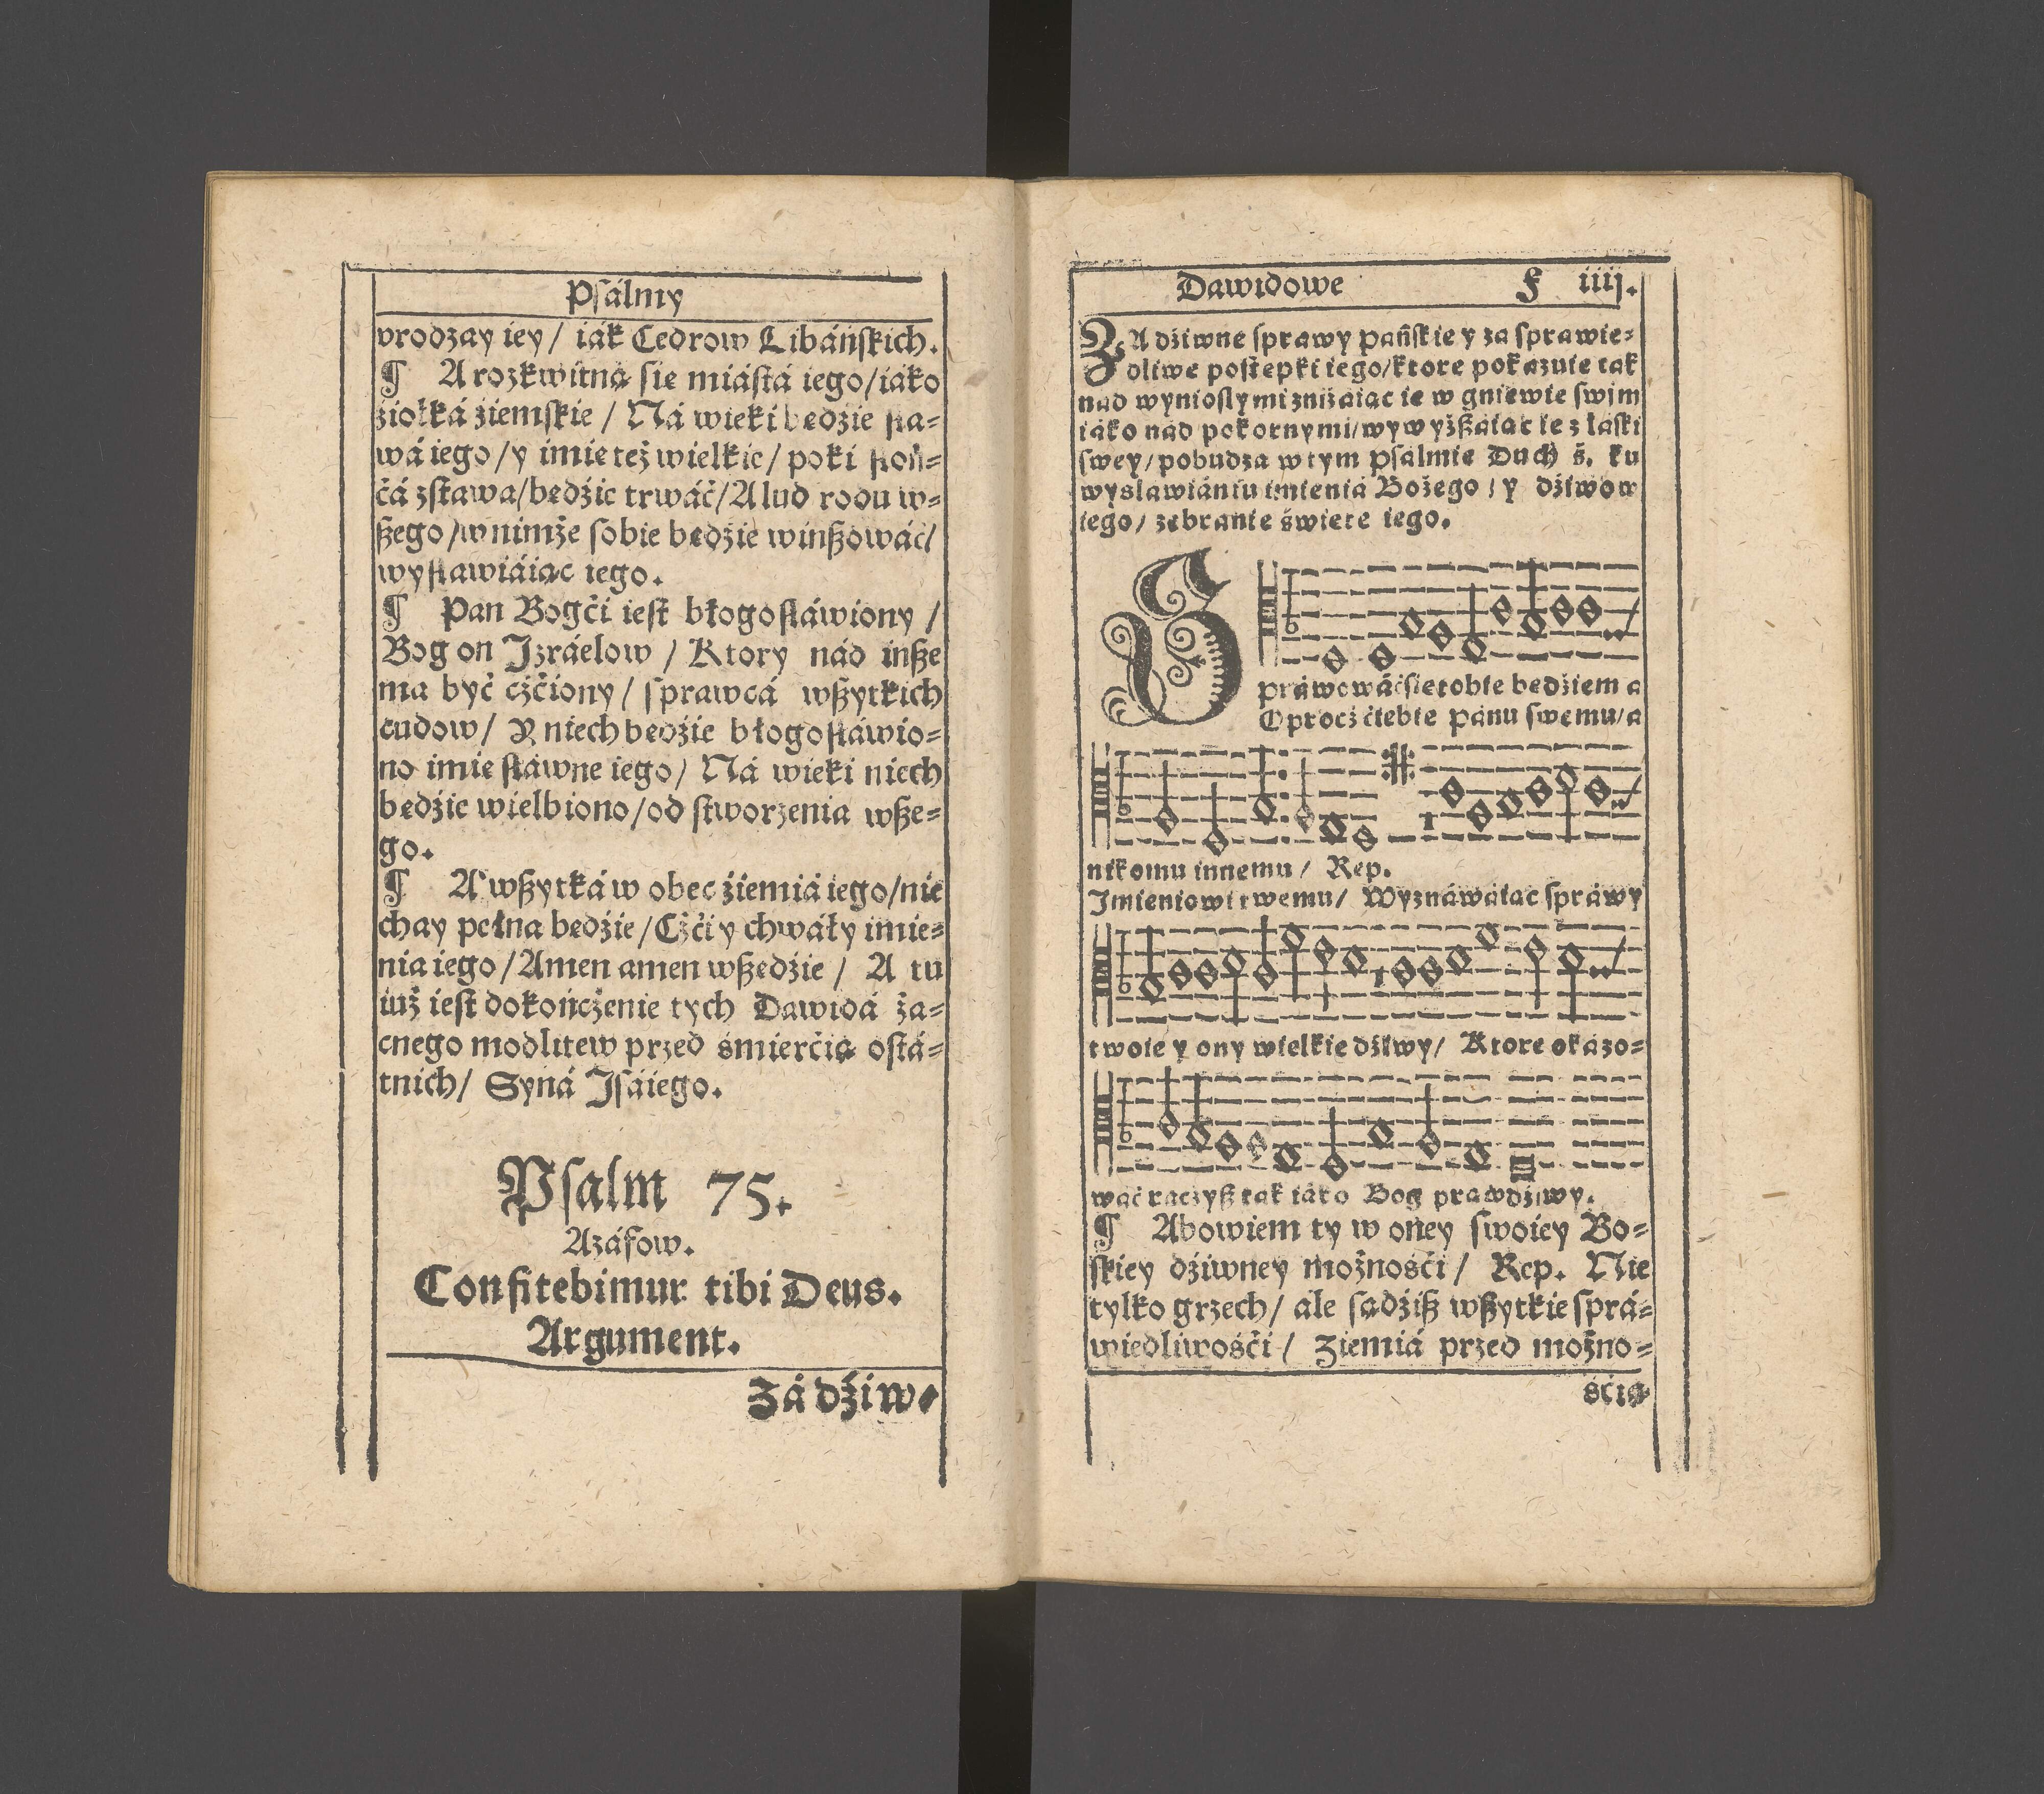 Psálmy
vrodzay iey / iák Cedrow Libáńskich.
¶ A rozkwitną sie miástá iego / iáko
źiołká źiemskie / Ná wieki będzie sła=
wá iego / y imie też wielkie / poki słoń=
cá zstawa / będźie trwáć / A lud rodu w=
ßego / w nimże sobie będźie winßowáć /
wysławiáiąc iego.
¶ Pan Bog ći iest błogosłáwiony /
Bog on Izráelow / Ktory nád inße
ma być cżćiony / sprawcá wßytkich
cudow / Y niech będźie błogosłáwio=
no imie słáwne iego / Ná wieki niech
będźie wielbiono / od stworzenia wße=
go.
¶ A wßytká w obec źiemiá iego / nie
chay pełna będźie / Cżći y chwały imie=
nia iego / Amen amen wßędźie / A tu
iuż iest dokończenie tych Dawidá za=
cnego modlitew przed śmierćią ostá=
tnich / Syná Isáiego.
Psalm 75.
Azáfow.
Confitebimur tibi Deus.
Argument.
Zá dźiw=
Dawidowe f iiij.
ZA dźiwne sprawy Pańskie y za sprawie=
dliwe postępki iego / ktore pokazuie tak
nad wyniosłymi zniżaiąc ie w gniewie swym
iáko nád pokornymi / wywyżßáiąc ie z łaski
swey / pobudza w tym Psálmie Duch ś. ku
wysławiániu imieniá Bożego / y dźiwow
iego / zebranie święte iego.
Spráwowáć sie tobie będźiem a
Oprocż ćiebie Pánu swemu / a
nikomu innemu / Rep.
Imieniowi twemu / Wyznáwáiąc spráwy
twoie y ony wielkie dźiwy / Ktore okázo=
wáć raczyß tak iáko Bog prawdźiwy.
¶ Abowiem ty w oney swoiey Bo=
skiey dźiwney możnośći / Rep. Nie
tylko grzech / ale sądźiß wßytkie sprá=
wiedliwośći / Ziemiá przed możno=
śćią